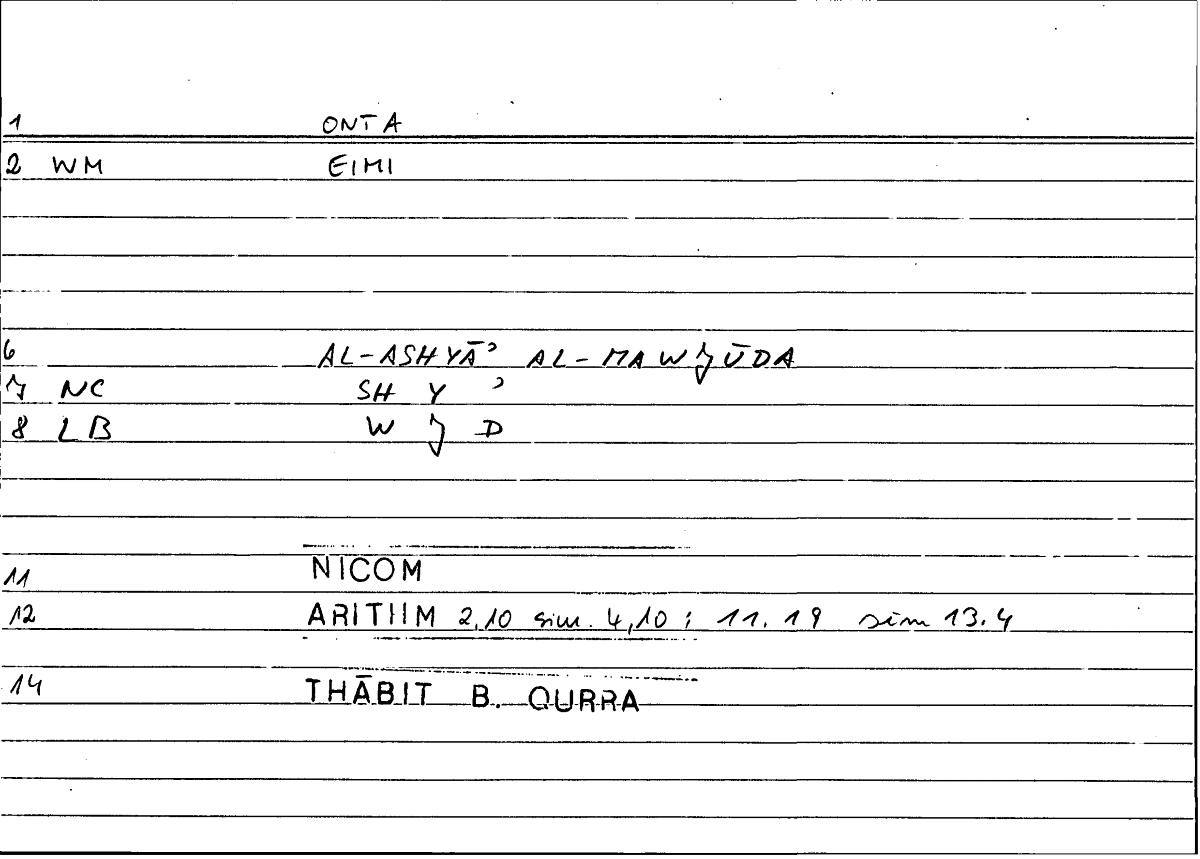 1 ONTA
2 WM EIMI
6 AL-ASHYĀʾ AL-MAWJŪDA
7 NC SH Y ʾ
8 LB W J D
11 NICOM
12 ARITHM 2,10 sim. 4,10 ; 11.19 sim 13.4
14 THĀBIT B. QURRA